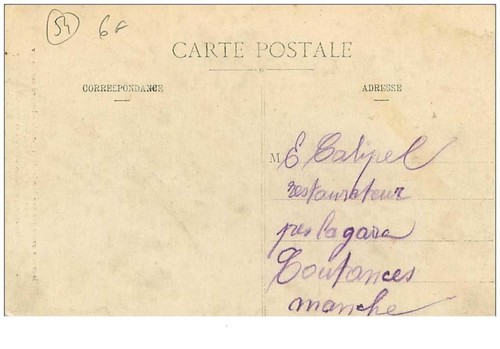 54 6F
CARTE POSTALE
CORRESPONDANCE ADRESSE
M E Calipel
restaurateur
pres la gare
Coutances
manche